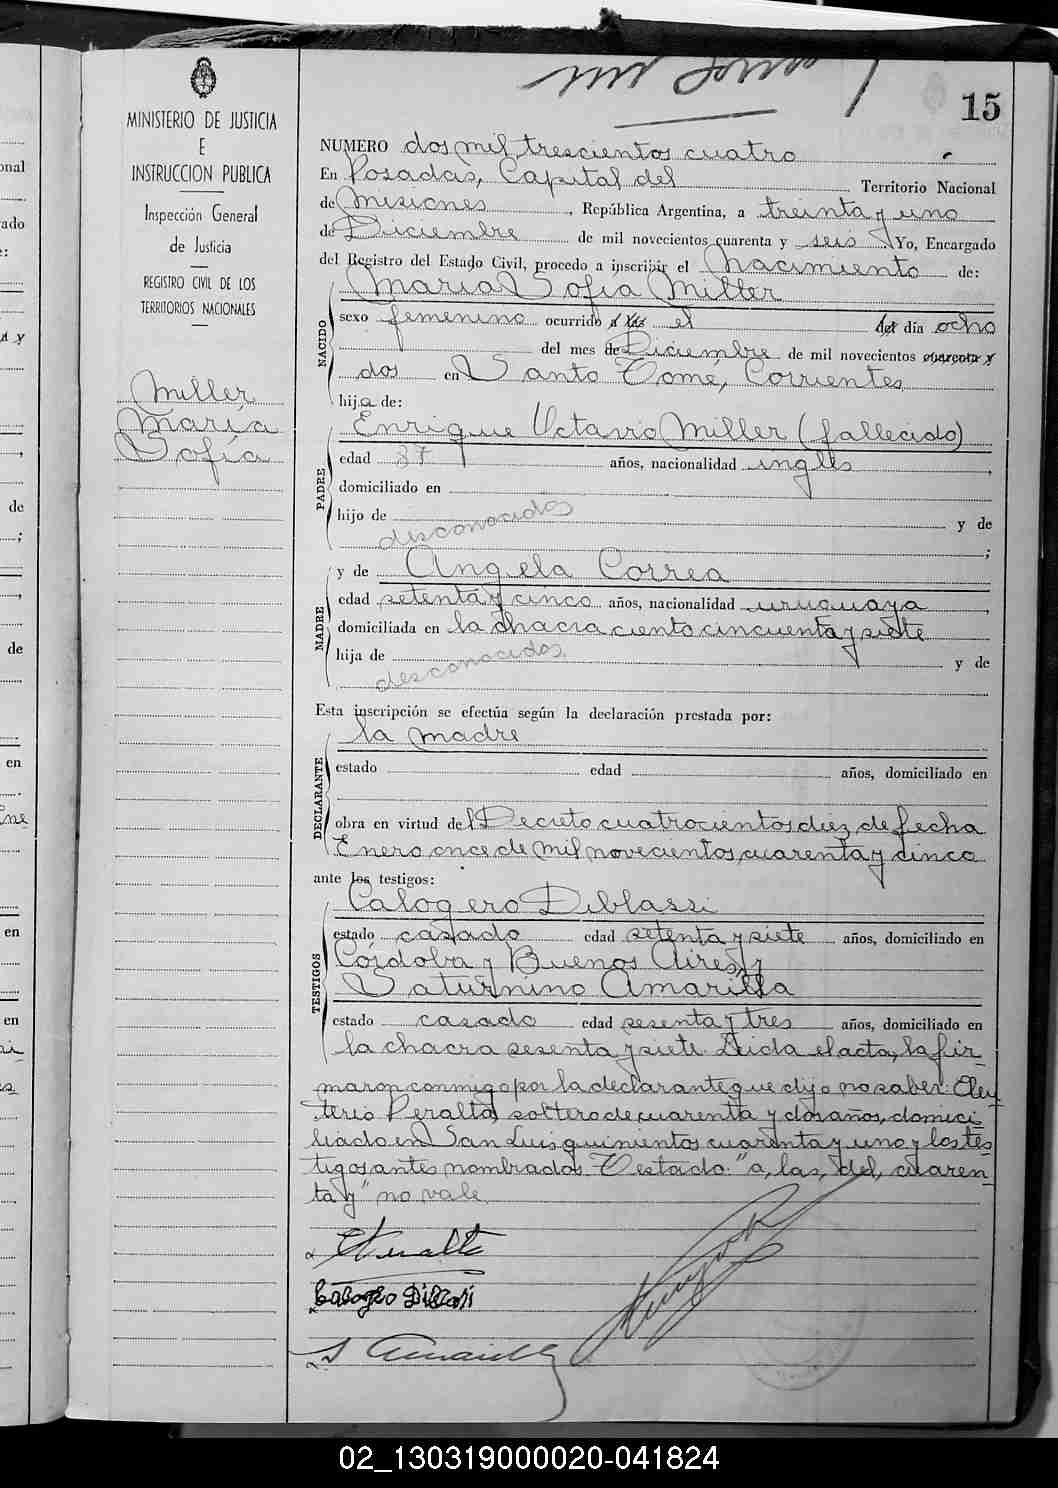 15
MINISTERIO DE JUSTICIA
E
INSTRUCCION PUBLICA
Inspección General
de Justicia
REGISTRO CIVIL DE LOS
TERRITORIOS NACIONALES
Miller
María
Sofía
NUMERO dos mil trescientos cuatro
En Posadas, Capital del Territorio Nacional
de Misiones, República Argentina, a treinta y uno
de Diciembre de mil novecientos cuarenta y seis. Yo, Encargado
del Registro del Estado Civil, procedo a inscribir el Nacimiento de:
NACIDO
Maria Sofia Miller
sexo femenino ocurrido a las el del día ocho
del mes de Diciembre de mil novecientos cuarenta y
dos en Santo Tomé, Corrientes
hija de:
PADRE
Enrique Octavio Miller (fallecido)
edad 37 años, nacionalidad inglés,
domiciliado en
hijo de desconocidos y de
;
MADRE
y de Angela Correa
edad setenta y cinco años, nacionalidad uruguaya,
domiciliada en la chacra ciento cincuenta y siete
hija de desconocidos y de
Esta inscripción se efectúa según la declaración prestada por:
DECLARANTE
la madre
estado edad años, domiciliado en
obra en virtud del Decreto cuatrocientos diez de fecha
Enero once de mil novecientos cuarenta y cinco
ante los testigos:
TESTIGOS
Calogero Diblassi
estado casado edad setenta y siete años, domiciliado en
Córdoba y Buenos Aires, y
Saturnino Amarilla
estado casado edad sesenta y tres años, domiciliado en
la chacra sesenta y siete. Leida el acta, la fir-
maron conmigo por la declarante que dijo no saber: Eleu-
terio Peralta, soltero de cuarenta y dos años, domici-
liado en San Luis quinientos cuarenta y uno y los tes-
tigos antes nombrados. Testado: "a, las, del, cuaren-
ta y" no vale.
E Peralta
Calogero Diblasi
S Amarilla
02_130319000020-041824